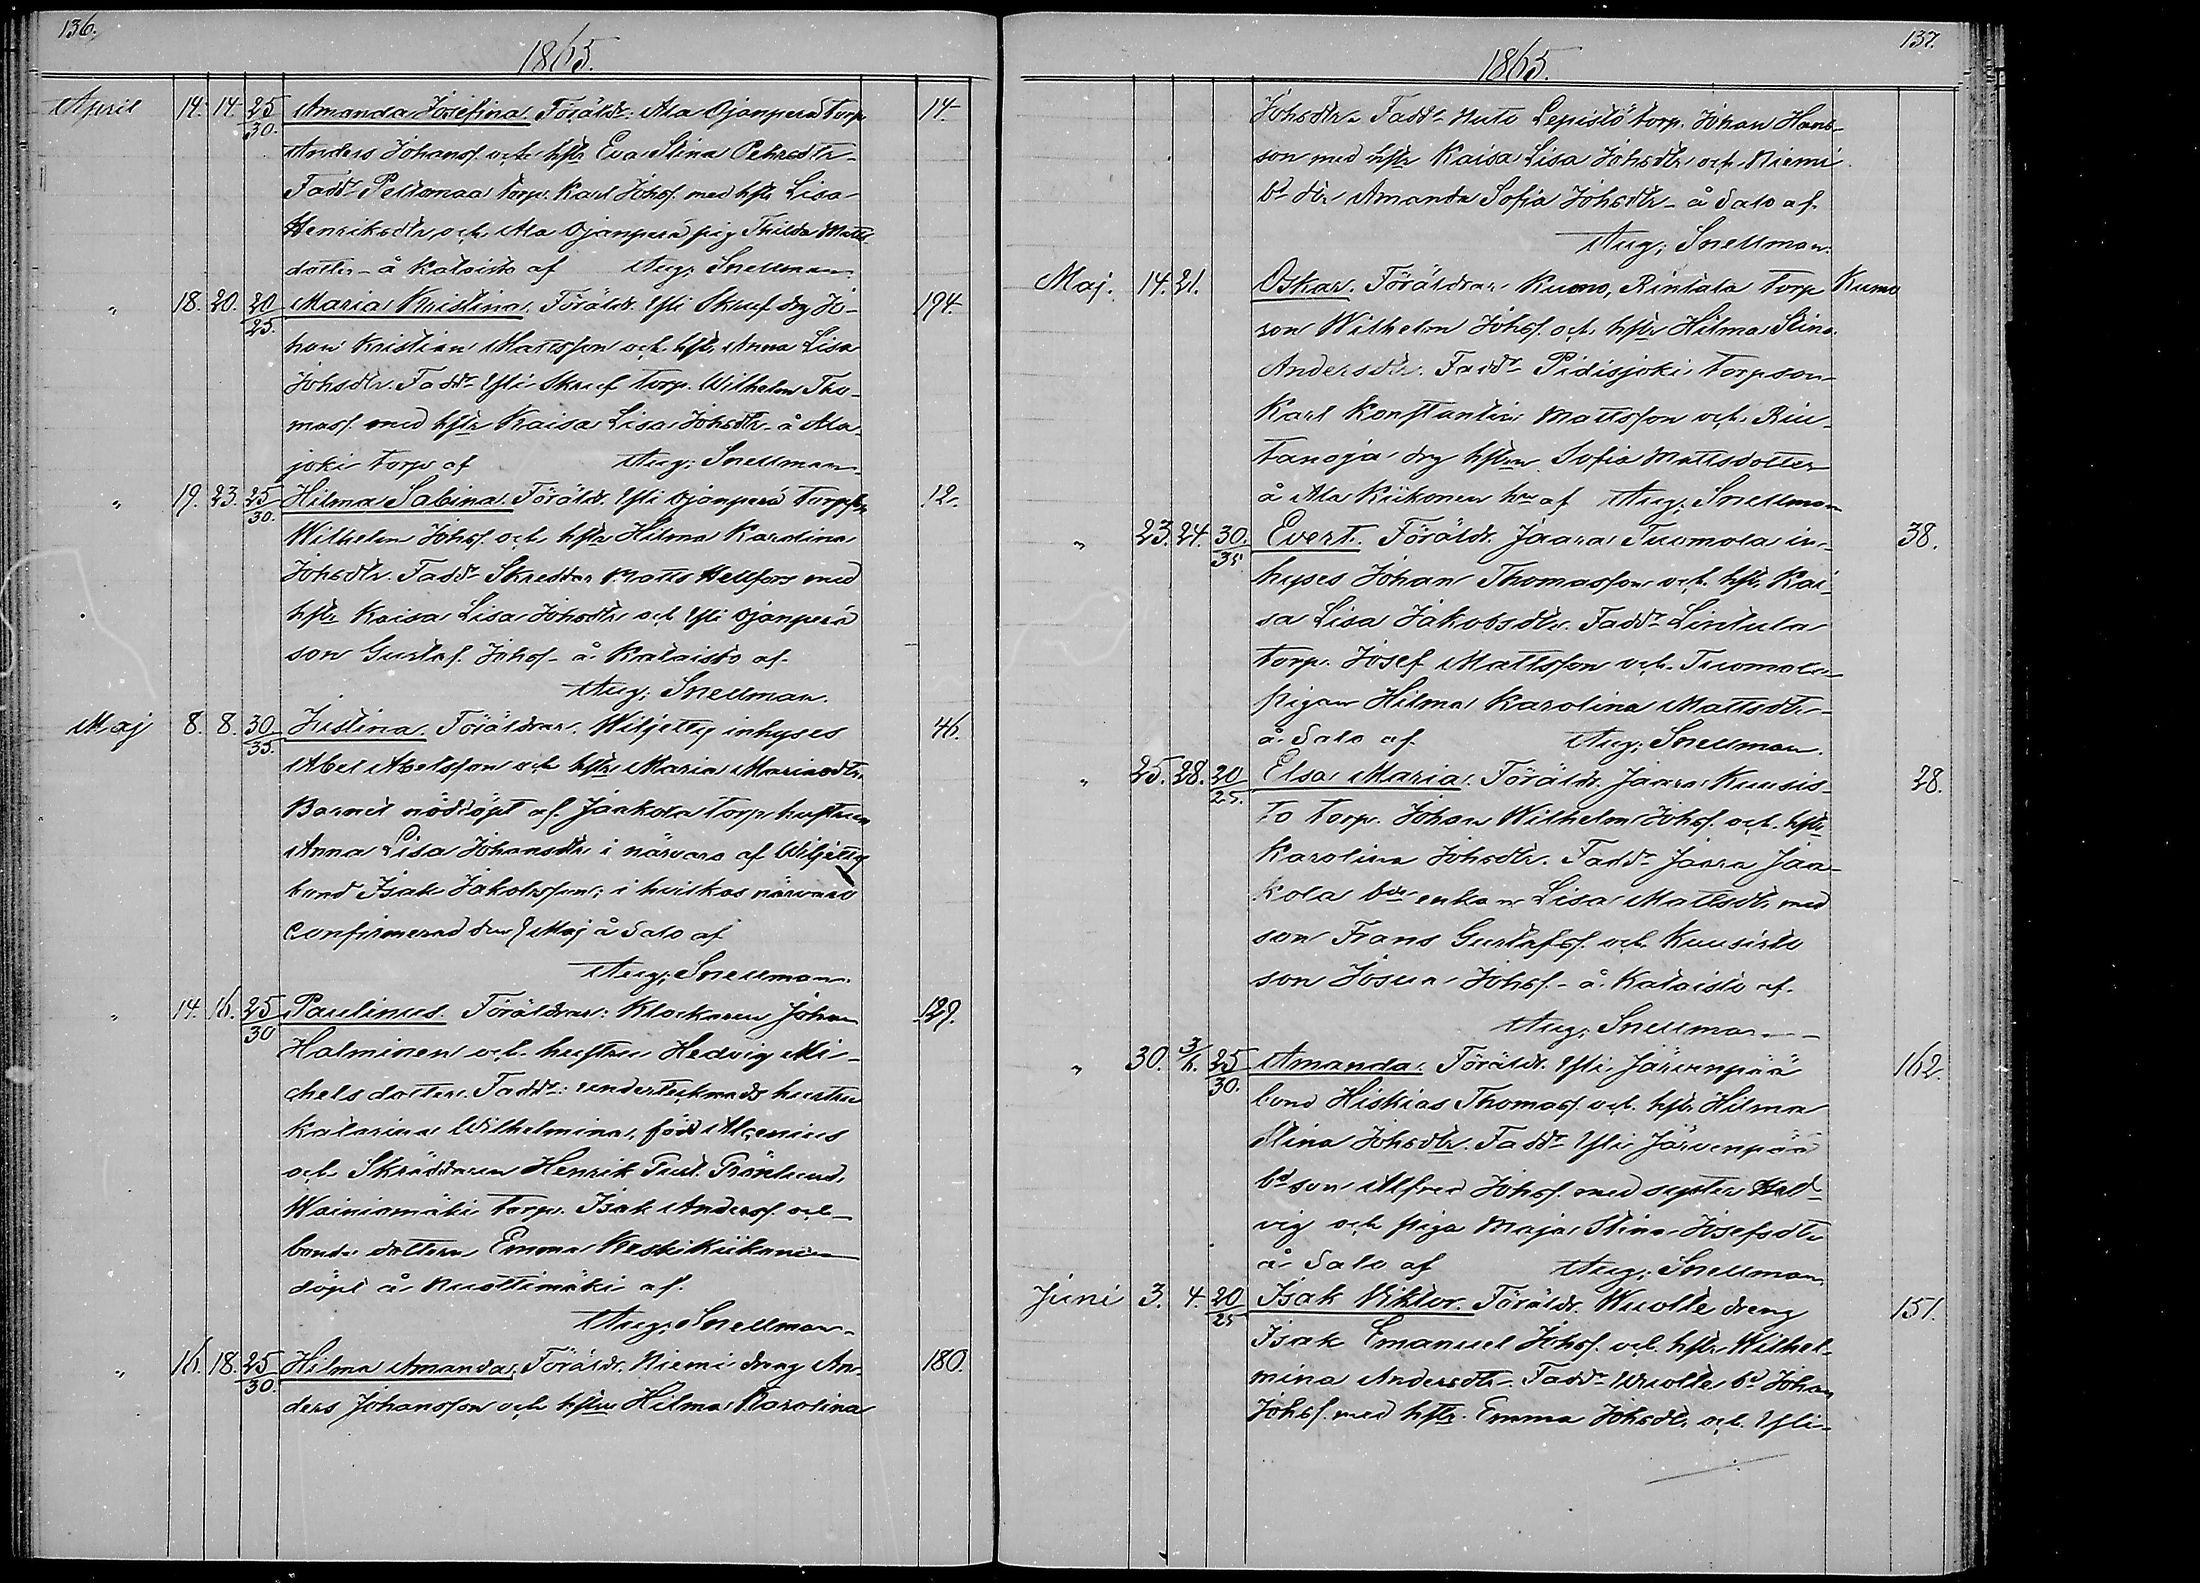 136.
1865.
April 14. 14. 25/30. Amanda Josefina. Föräldr: Ala Ojanperä torp. 14.
Anders Johansf. och hstr Eva Stina Pehrsdtr.
Fadd: Peltomaa torp. Karl Johsf. med hstr Lisa
Henriksdtr, och Ala Ojanperä pig Thilda Matts
dotter - å Kataisto af Aug. Snellman.
" 18. 20. 20/25. Maria Kristina. Föräldr. Yli Skruf drg Jo- 194.
han Kristian Mattsson och hstr. Anna Lisa
Johsdtr. Fadd: Yli Skruf torp. Wilhelm Tho-
masf. med hstr Kaisa Lisa Johsdtr - å Ala-
joki torp af Aug. Snellman.
" 19. 23. 25/30. Hilma Sabina. Föräldr. Yli Ojanperä torp 12.
Wilhelm Johsf. och hstr Hilma Karolina
Johsdtr. Fadd: Skreddar Matts Hellfors med
hstr Kaisa Lisa Johsdtr och Yli Ojanperä
son Gustaf Johsf. - å Kataisto af.
Aug. Snellman.
Maj 8. 8. 30/35. Justina. Föräldrar. Wiljettig inhyses 46.
Abel Abelsson och hstr Maria Mariasdtr.
Barnet nöddöpt af Jaakola torp hustrun
Anna Lisa Johansdtr i närvaro af Wiljettig
bond Isak Jakobsson; i hvilkas närvaro
Confirmerad den 9 Maj å Salo af
Aug. Snellman.
" 14. 16. 25/30 Paulinus. Föräldrar: Klockaren Johan 129.
Halminen och hustru Hedvig Mi-
chelsdotter. Fadd: undertecknads hustru
Katarina Wilhelmina, född Alcenius
och Skräddaren Henrik Trönlund,
Wainiomäki torp. Isak Andersf. och
bonde dottern Emma Keski Kiikonen
döpt å Nuottimäki af.
Aug. Snellman.
" 16. 18. 25/30. Hilma Amanda. Föräldr. Niemi dreng An- 180.
ders Johansson och hstru Hilma Karolina
137.
1865.
Johsdtr. Fadd: Lepistö torp. Johan Hans-
son med hstr Kaisa Lisa Johsdtr och Niemi
bd dtr Amanda Sofia Johsdtr - å Salo af.
Aug. Snellman.
Maj. 14. 21. Oskar. Föräldrar: Kumo, Rintala torp Kumo
son Wilhelm Johsf. och hstr Hilma Stina
Andersdtr. Fadd: Pidisjoki torpson
Karl Konstantin Mattsson och Rin-
tanoja drg hstrn Sofia Mattsdotter
å Ala Kiikonen af Aug. Snellman
" 23. 24. 30/35. Evert. Föräldr. Jaara Tuomola in- 38.
hyses Johan Thomasson och hstr. Kai-
sa Lisa Jakobsdtr. Fadd: Lintula
torp. Josef Mattsson och Tuomola
pigan Hilma Karolina Mattsdtr -
å Salo af. Aug. Snellman.
" 25. 28. 20/25. Elsa Maria. Föräldr. Jaara Kuusis- 28.
to torp. Johan Wilhelm Johsf. och hstr
Karolina Johsdtr. Fadd: Jaara Jaa-
kola enkan Lisa Mattsdtr med
son Frans Gustafsf. och Kuusisto
son Josua Johsf. - å Kataisto af.
Aug. Snellman
" 30. 3/6. 25/30. Amanda. Föräldr. Yli Järvenpää 162.
bond Hiskias Thomasf. och hstr Hilma
Stina Johsdtr. Fadd: Yli Järvenpää
bd son Alfred Johsf. med syster Hed-
vig och piga Maja Stina Josefsdtr
å Salo af Aug. Snellman.
Juni 3. 4. 20/25 Isak Viktor. Föräldr. Wuolle dreng 151.
Isak Emanuel Johsf. och hstr Wilhel-
mina Andersdtr. Fadd: Wuolle bd Johan
Johsf. med hstr. Emma Johsdtr. och Yli-